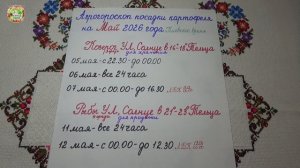 Агрогороскоп посадки картофеля
на Май 2026 года
Козерог УЛ, Солнце в 15-16 Тельца
для хранения
05 мая - с 22.30 - до 00.00
06 мая - все 24 часа
07 мая - с 00.00 - до 16.30
Рыбы УЛ, Солнце в 21-23 Тельца
для хранения
11 мая - все 24 часа
12 мая - с 00.00 - до 12.30